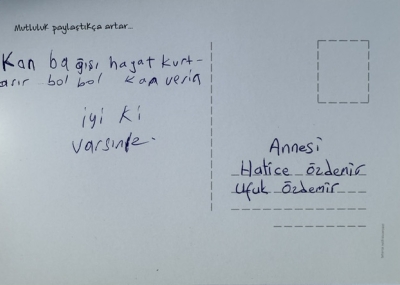 Mutluluk paylaştıkça artar...
Kan bağışı hayat kurt-
arır bol bol kan verin
iyi ki
varsınız.
Annesi
Hatice Özdemir
Ufuk Özdemir